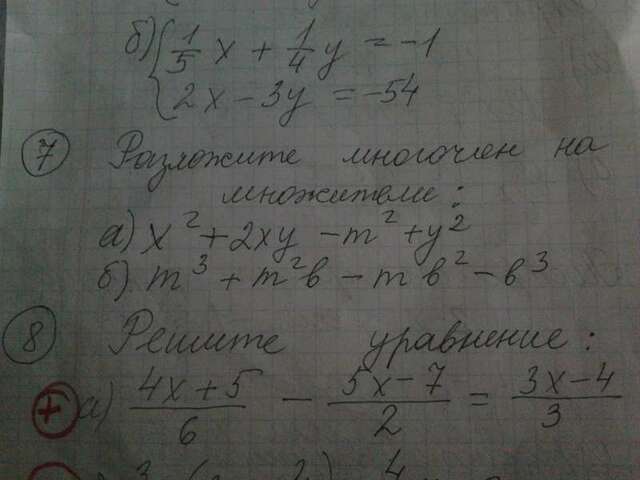 б) { 1/5 x + 1/4 y = -1
2x - 3y = -54
7 Разложите многочлен на
множители:
а) x² + 2xy - m² + y²
б) m³ + m²в - mв² - в³
8 Решите уравнение:
+ а) (4x + 5)/6 - (5x - 7)/2 = (3x - 4)/3